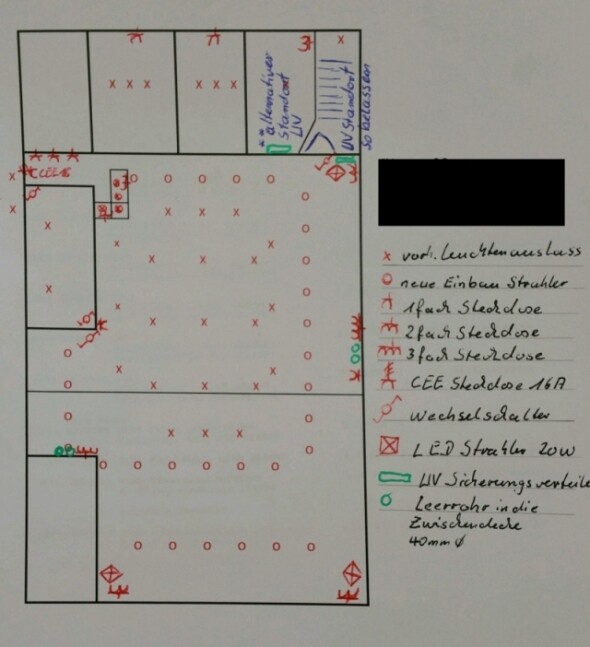 alternativer
Standort
UV
UV Standort
so belassen
CEE 16
vorh. Leuchtenauslass
neue Einbau Strahler
1fach Steckdose
2fach Steckdose
3fach Steckdose
CEE Steckdose 16A
Wechselschalter
LED Strahler 20W
UV Sicherungsverteile
Leerrohr in die
Zwischendecke
40mm ø